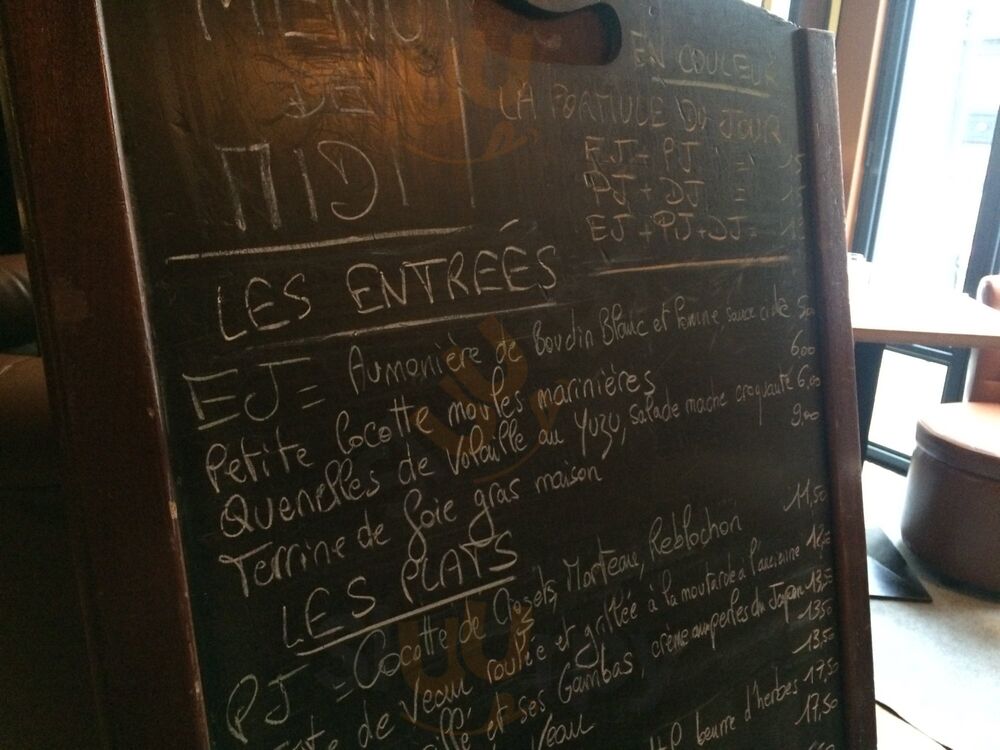 MENU
DE
MIDI
EN COULEUR
LA FORMULE DU JOUR
EJ + PJ =
PJ + DJ =
EJ + PJ + DJ =
LES ENTREÉS
EJ = Aumonière de boudin Blanc et Pomme, sauce cidre 5,00
Petite Cocotte moules marinières 6,00
Quenelles de Volaille au Yuzu, salade mache croquante 6,00
Terrine de foie gras maison 9,00
LES PLATS
PJ = Cocotte de Crozets, Morteau, Reblochon 11,50
de Veau roulée et grillée à la moutarde à l'ancienne
et ses Gambas, crème aux perles du Japon 13,50
Veau 13,50
13,50
beurre d'herbes 17,50
17,50